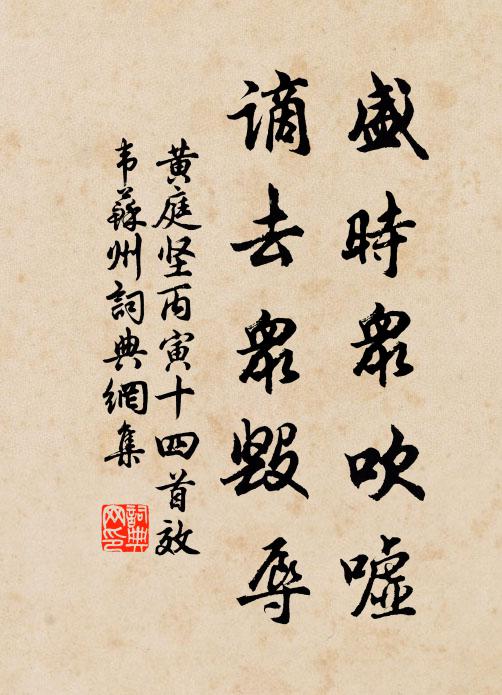 盛時眾吹噓
謫去眾毀辱
黄庭坚丙寅十四首效
韦蘇州詞典網集
詞典网印